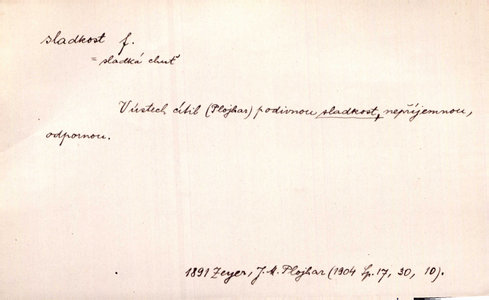 sladkost f.
= sladká chuť
V ústech cítil (Plojhar) podivnou sladkost, nepříjemnou,
odpornou.
1891 Zeyer, J. M. Plojhar (1904 Sp. 17, 30, 10).